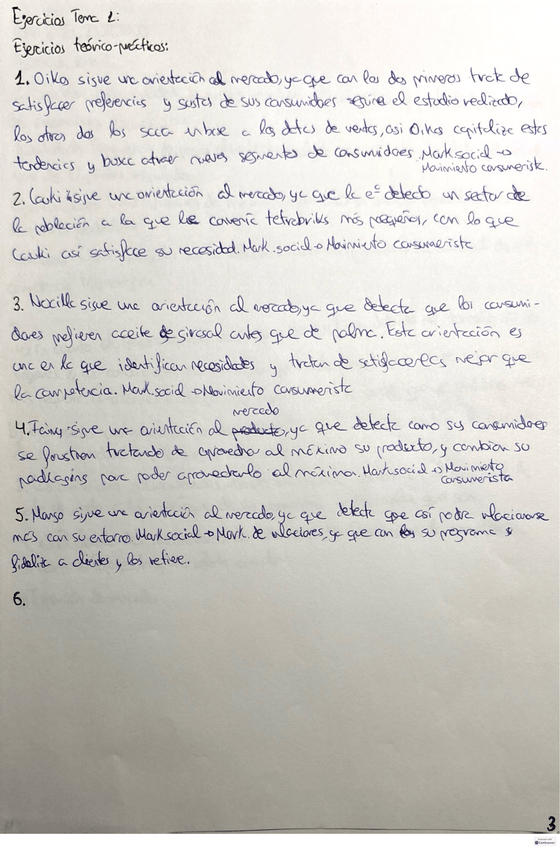 Ejercicios Tema 1:
Ejercicios teórico-prácticos:
1. Oikos sigue una orientación al mercado, ya que con los dos primeros trata de
satisfacer preferencias y gustos de sus consumidores según el estudio realizado,
los otros dos los saca en base a los datos de ventas, así Oikos capitaliza estas
tendencias y busca atraer nuevos segmentos de consumidores. Mark social →
Movimiento consumerista.
2. Cauki sigue una orientación al mercado, ya que la eª detectó un sector de
la población a la que le convenía tetrabriks más pequeños, con lo que
Cauki así satisface su necesidad. Mark. social → Movimiento consumerista
3. Nocilla sigue una orientación al mercado, ya que detecta que los consumi-
dores prefieren aceite de girasol antes que de palma. Esta orientación es
una en la que identifican necesidades y tratan de satisfacerlas mejor que
la competencia. Mark social → Movimiento consumerista
mercado
4. Fairy sigue una orientación al producto, ya que detecta como sus consumidores
se frustran tratando de aprovechar al máximo su producto, y cambian su
packaging para poder aprovecharlo al máximo. Mark social → Movimiento
consumerista
5. Mango sigue una orientación al mercado, ya que detecta que así podrá relacionarse
más con su entorno. Mark social → Mark. de relaciones, ya que con su programa
fideliza a clientes y los retiene.
6.
3